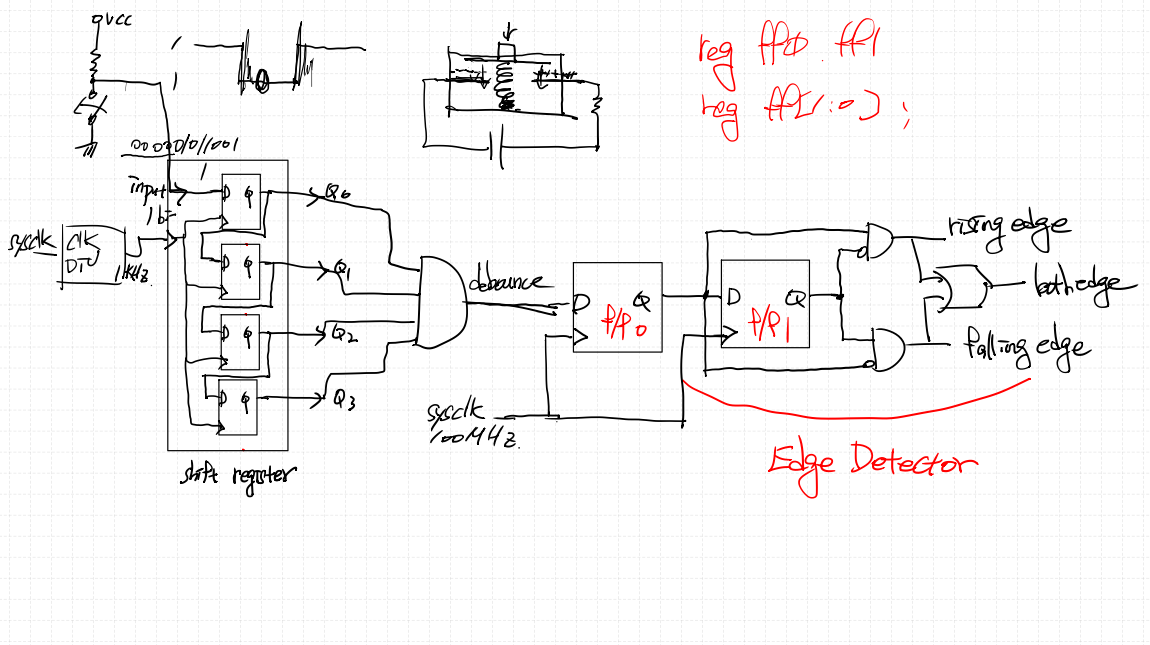 VCC
reg ff0, ff1
reg ff[1:0];
1
0
1
0000010111001
1
input
D Q
Q0
sysclk
clk
1KHz.
D Q
Q1
D Q
Q2
D Q
Q3
shift register
debounce
D Q
F/F0
D Q
F/F1
sysclk
100MHz.
rising edge
both edge
falling edge
Edge Detector